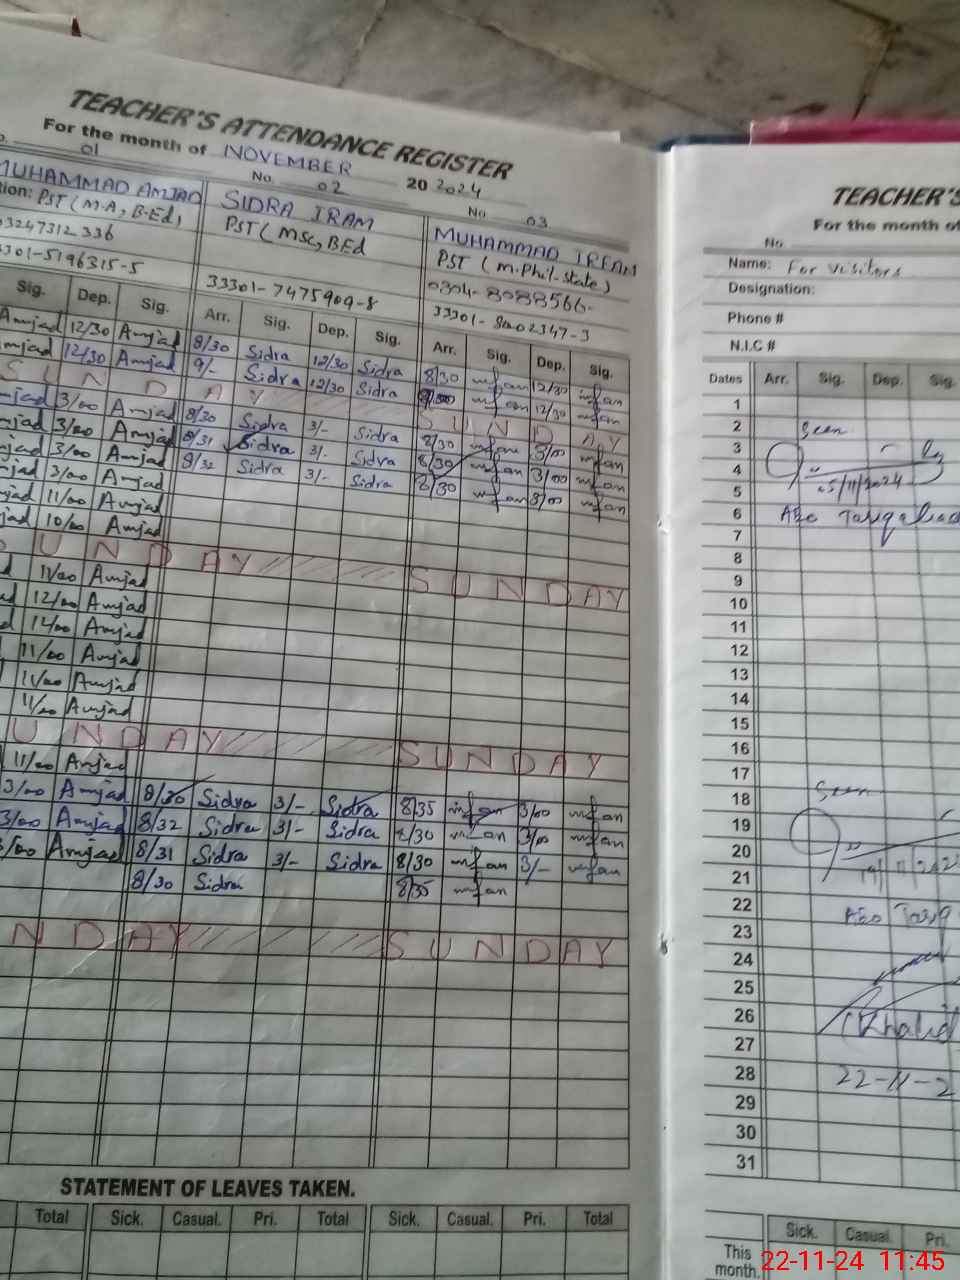 TEACHER'S ATTENDANCE REGISTER
For the month of NOVEMBER 20 2024
01 No. 02 No. 03
MUHAMMAD AMJAD SIDRA IRAM MUHAMMAD IRFAN
tion: PST (M.A, B.Ed, PST ( MSC, BEd PST ( M.Phil-state)
03247312336 0304-8088566-
3301-5196315-5 33301-7475909-8
Sig. Dep. Sig. Arr. Sig. Dep. Sig. Arr. Sig. Dep. Sig.
Amjad 12/30 Amjad 8/30 Sidra 12/30 Sidra 8/30 irfan 12/30 irfan
mjad 12/30 Amjad 9/- Sidra 12/30 Sidra irfan 12/30 irfan
SUNDAY SUNDAY
mjad 3/00 Amjad 8/30 Sidra 3/- Sidra 8/30 irfan 3/00 irfan
mjad 3/00 Amjad 8/31 Sidra 3/- Sidra 8/30 irfan 3/00 irfan
jad 3/00 Amjad 8/32 Sidra 3/- Sidra 8/30 irfan 3/00 irfan
jad 11/00 Amjad
jad 10/00 Amjad
UNDAY SUNDAY
d 11/00 Amjad
d 12/00 Amjad
d Amjad
11/00 Amjad
11/00 Amjad
11/00 Amjad
UNDAY SUNDAY
11/00 Amjad
3/00 Amjad 8/30 Sidra 3/- Sidra 8/35 irfan 3/00 irfan
3/00 Amjad 8/32 Sidra 3/- Sidra 8/30 irfan 3/00 irfan
3/00 Amjad 8/31 Sidra 3/- Sidra 8/30 irfan 3/- irfan
8/30 Sidra 8/35 irfan
NDAY SUNDAY
STATEMENT OF LEAVES TAKEN.
Total Sick. Casual. Pri. Total Sick. Casual. Pri. Total
TEACHER'S
For the month of
No.
Name: For visitors
Designation:
Phone #
N.I.C #
Dates Arr. Sig. Dep. Sig.
1
2 Seen
3
4
5 05/11/2024
6 AEO Tariqabad
7
8
9
10
11
12
13
14
15
16
17
18 Seen
19
20
21 19/11/202
22 AEO Tariq
23
24
25
26 (Khalid
27
28 22-11-2
29
30
31
Sick. Casual. Pri.
This month.
22-11-24 11:45